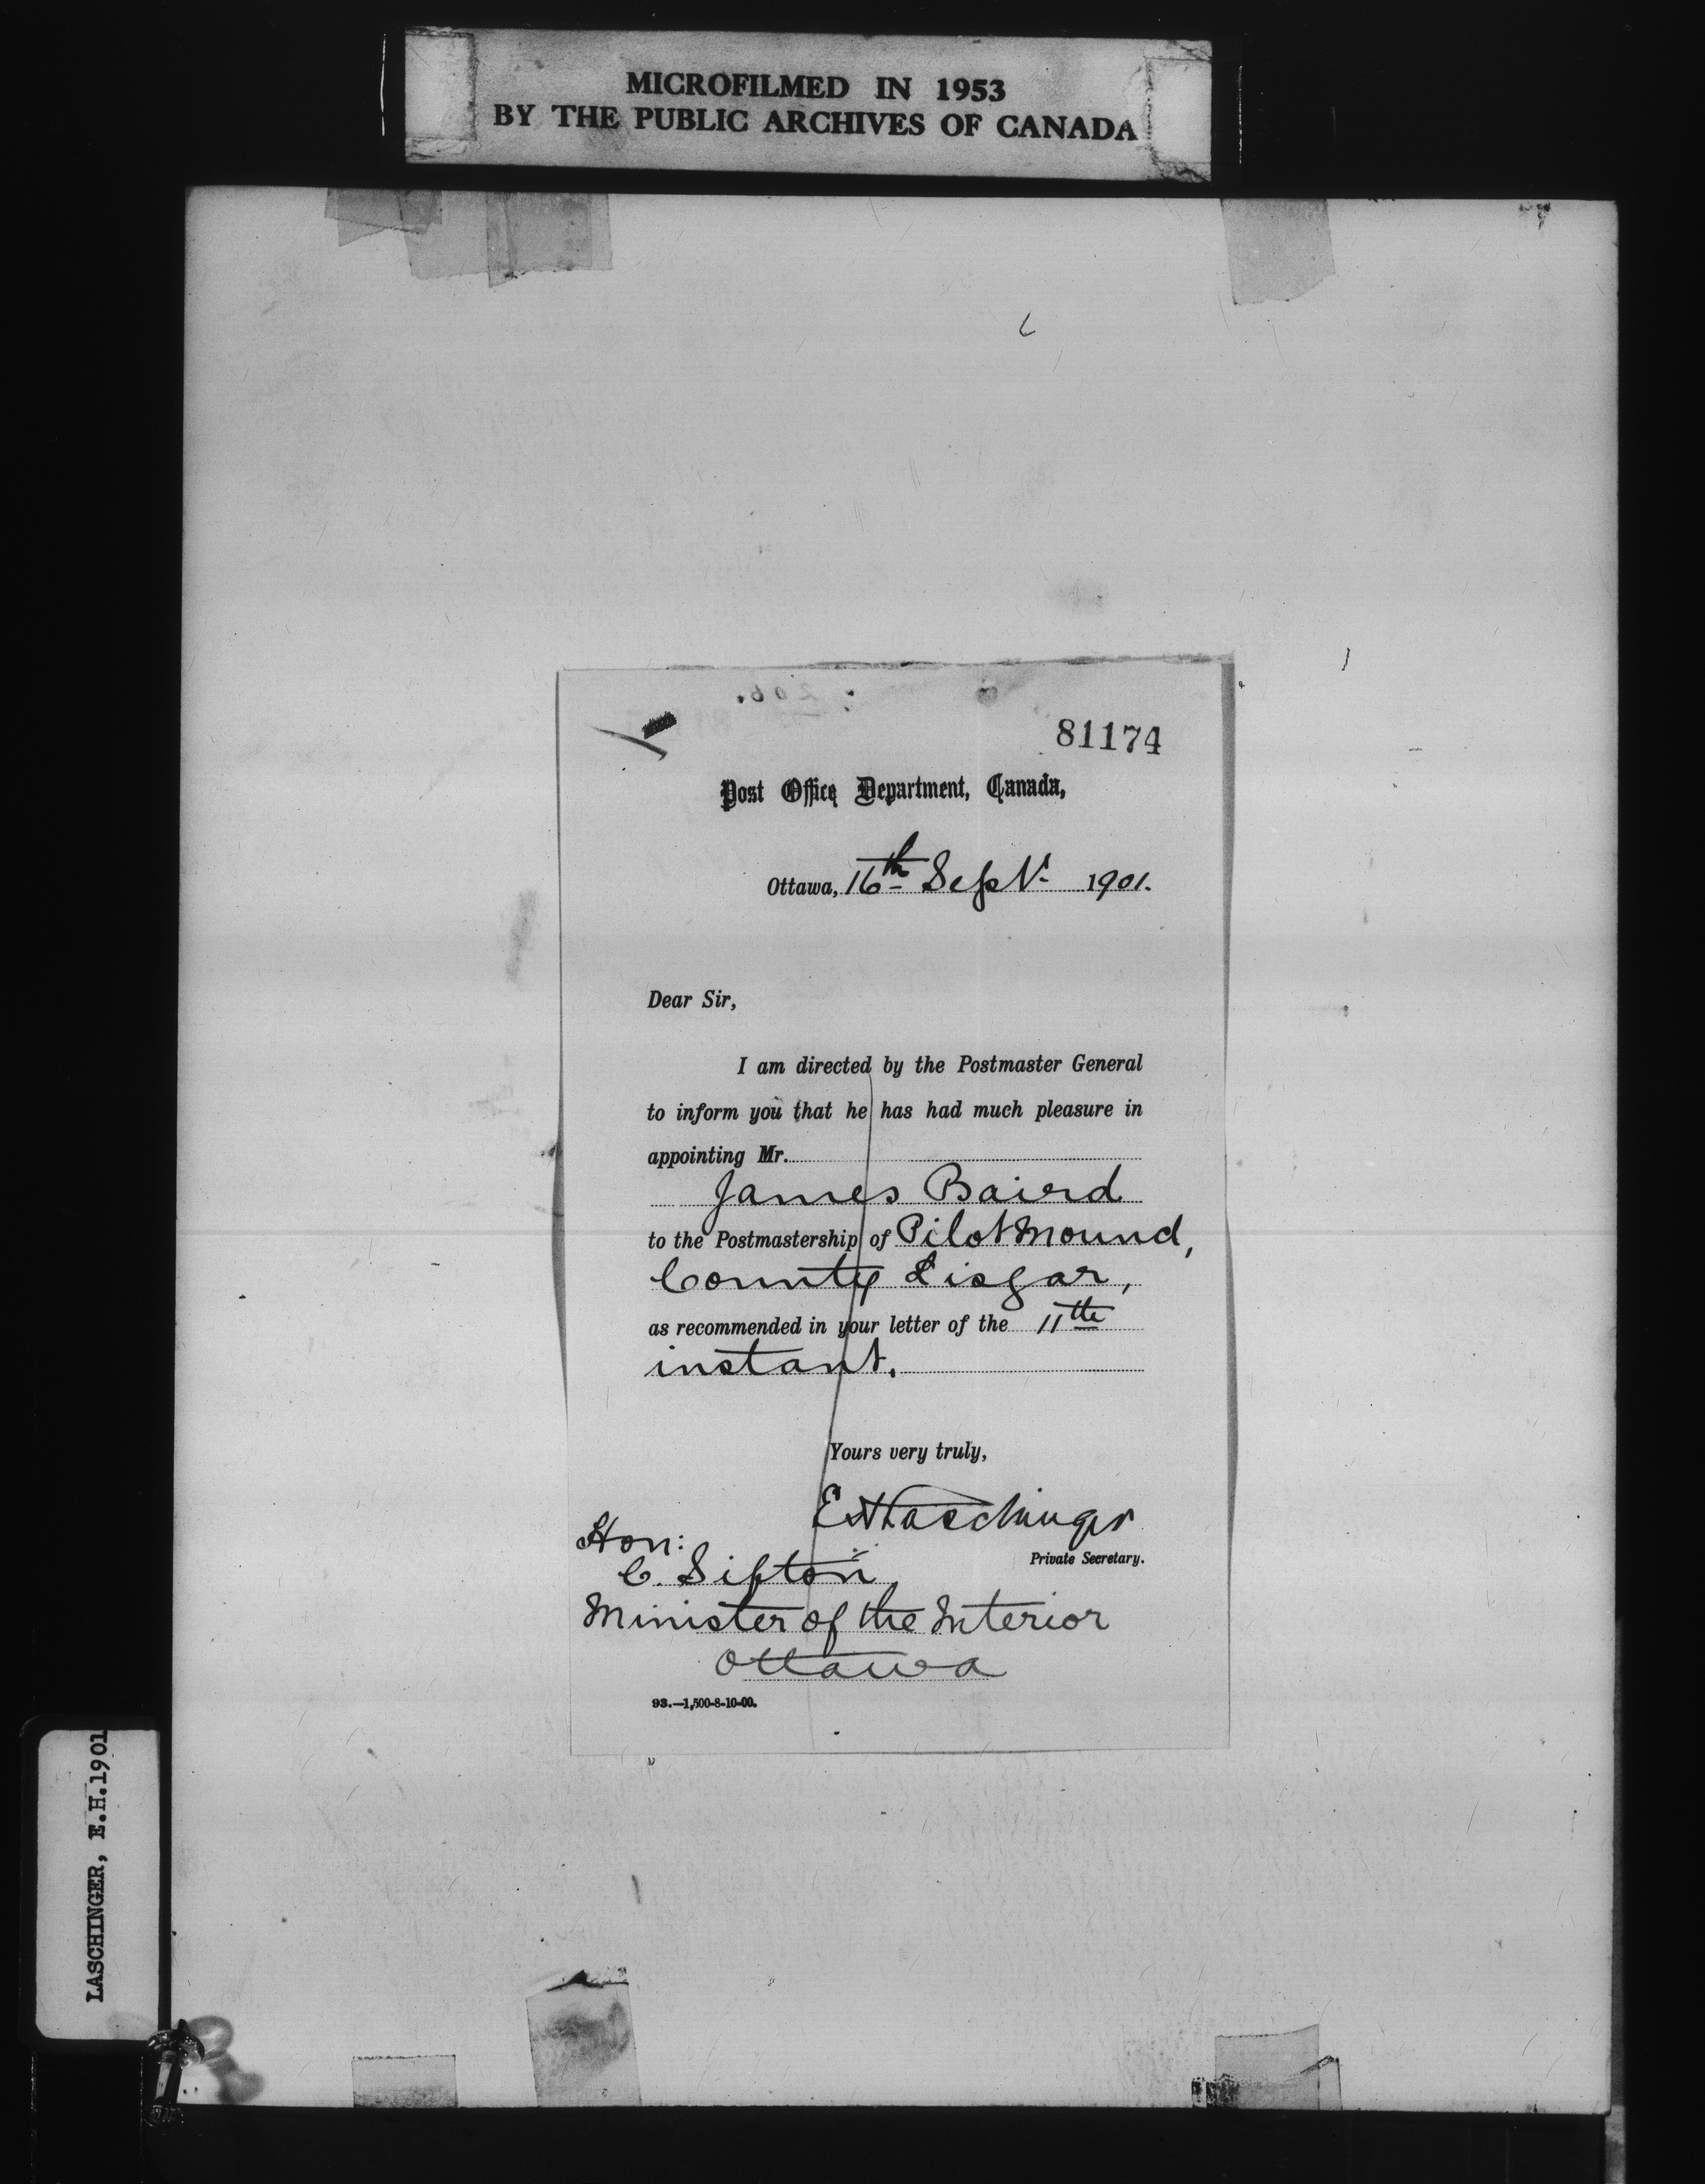 MICROFILMED IN 1953
BY THE PUBLIC ARCHIVES OF CANADA
81174
Post Office Department, Canada,
Ottawa, 16th Sept. 1901.
Dear Sir,
I am directed by the Postmaster General
to inform you that he has had much pleasure in
appointing Mr.
James Baird
to the Postmastership of Pilot Mound,
County Lisgar,
as recommended in your letter of the 11th
instant.
Yours very truly,
E H Laschinger
Private Secretary.
Hon:
C. Sifton
Minister of the Interior
Ottawa
93.—1,500-8-10-00.
LASCHINGER, E.H.1901